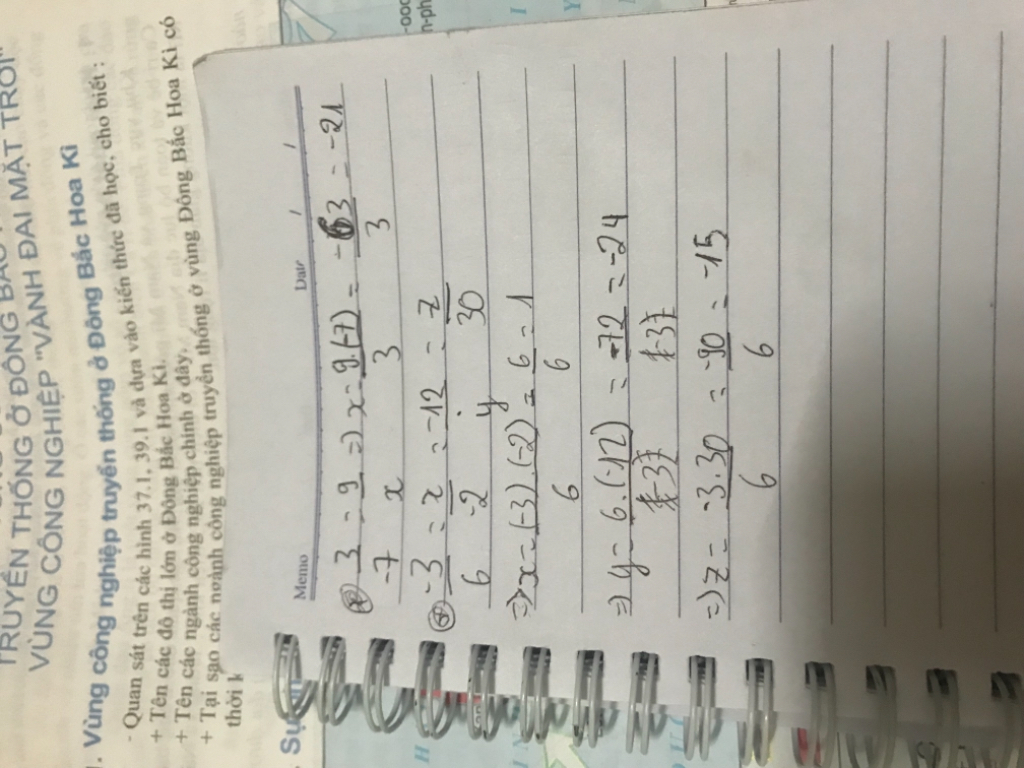 TRUYỀN THỐNG Ở ĐÔNG BẮC
VÙNG CÔNG NGHIỆP "VÀNH ĐAI MẶT TRỜI"
1. Vùng công nghiệp truyền thống ở Đông Bắc Hoa Kì
- Quan sát trên các hình 37.1, 39.1 và dựa vào kiến thức đã học, cho biết :
+ Tên các đô thị lớn ở Đông Bắc Hoa Kì.
+ Tên các ngành công nghiệp chính ở đây.
+ Tại sao các ngành công nghiệp truyền thống ở vùng Đông Bắc Hoa Kì có
thời k
Sự
Memo Date / /
3/-7 = 9/x => x = 9.(-7)/3 = -63/3 = -21
-3/6 = x/-2 = -12/y = z/30
=> x = (-3).(-2)/6 = 6/6 = 1
=> y = 6.(-12)/3 = -72/3 = -24
=> z = -3.30/6 = -90/6 = -15